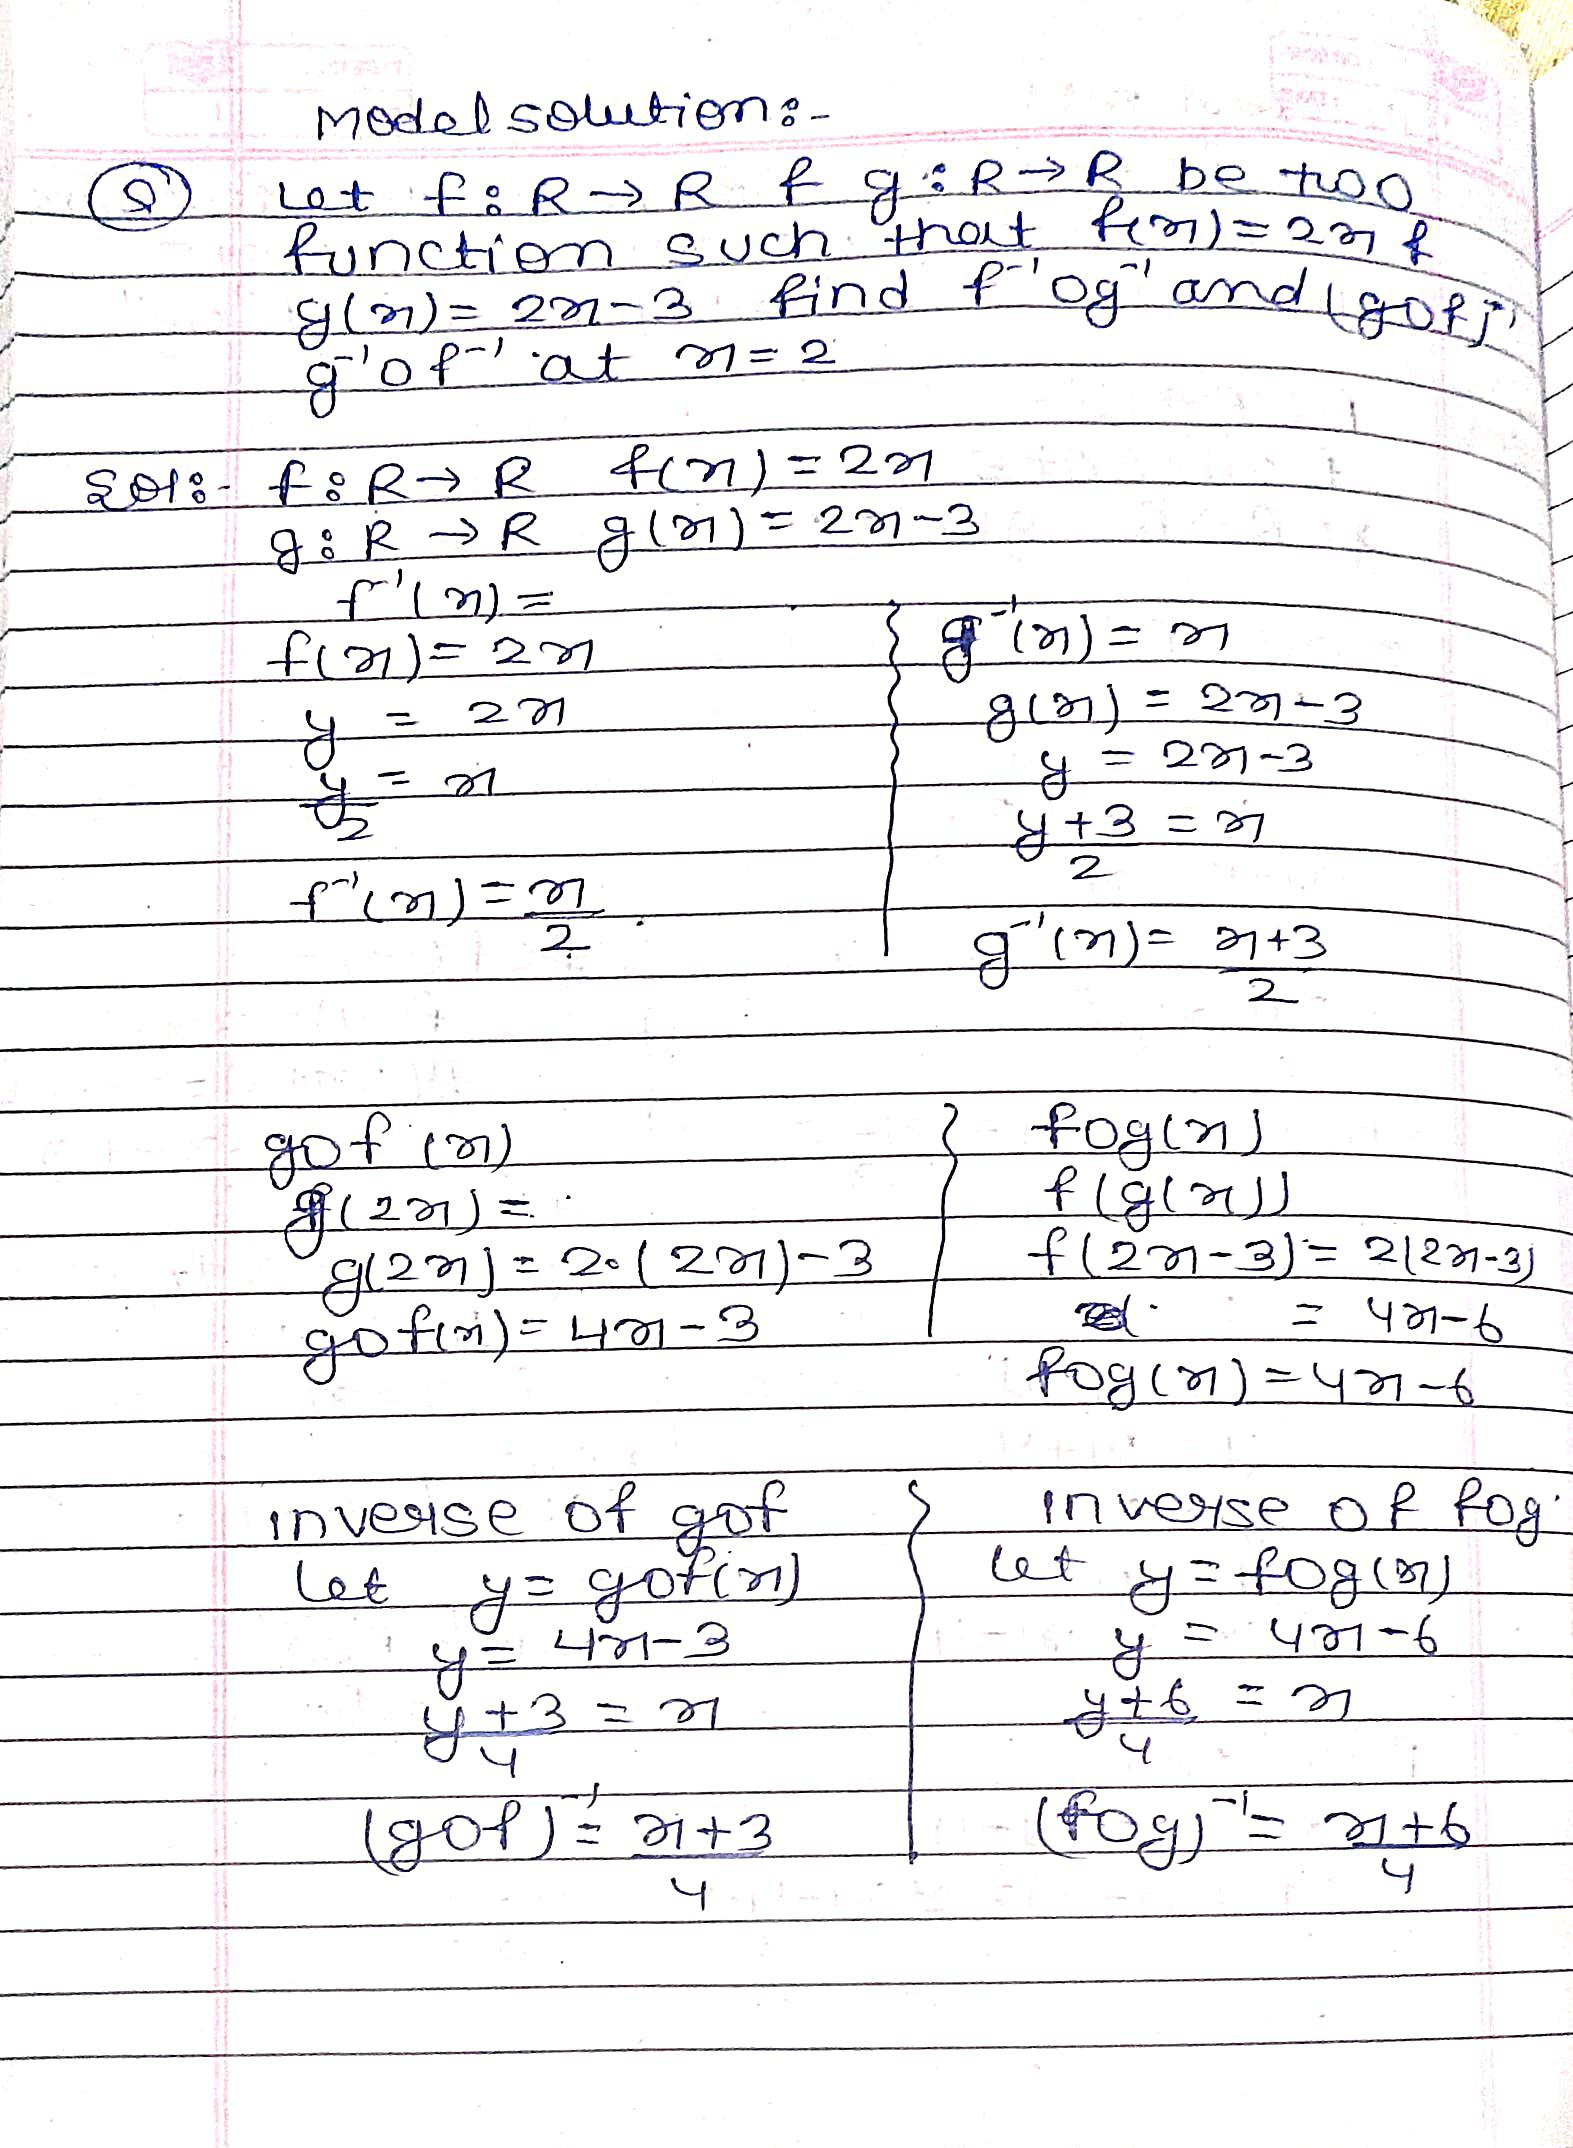 Model solution:-
Q Let f: R → R & g: R → R be two
function such that f(x) = 2x &
g(x) = 2x-3 find f⁻¹og⁻¹ and (gof)⁻¹
g⁻¹of⁻¹ at x = 2
Sol:- f: R → R f(x) = 2x
g: R → R g(x) = 2x-3
f⁻¹(x) =
f(x) = 2x
y = 2x
y/2 = x
f⁻¹(x) = x/2
g⁻¹(x) = x
g(x) = 2x-3
y = 2x-3
y+3/2 = x
g⁻¹(x) = x+3/2
gof (x)
g(2x) =
g(2x) = 2.(2x)-3
gof(x) = 4x-3
fog(x)
f(g(x))
f(2x-3) = 2(2x-3)
= 4x-6
fog(x) = 4x-6
inverse of gof
Let y = gof(x)
y = 4x-3
y+3/4 = x
(gof)⁻¹ = x+3/4
inverse of fog
Let y = fog(x)
y = 4x-6
y+6/4 = x
(fog)⁻¹ = x+6/4